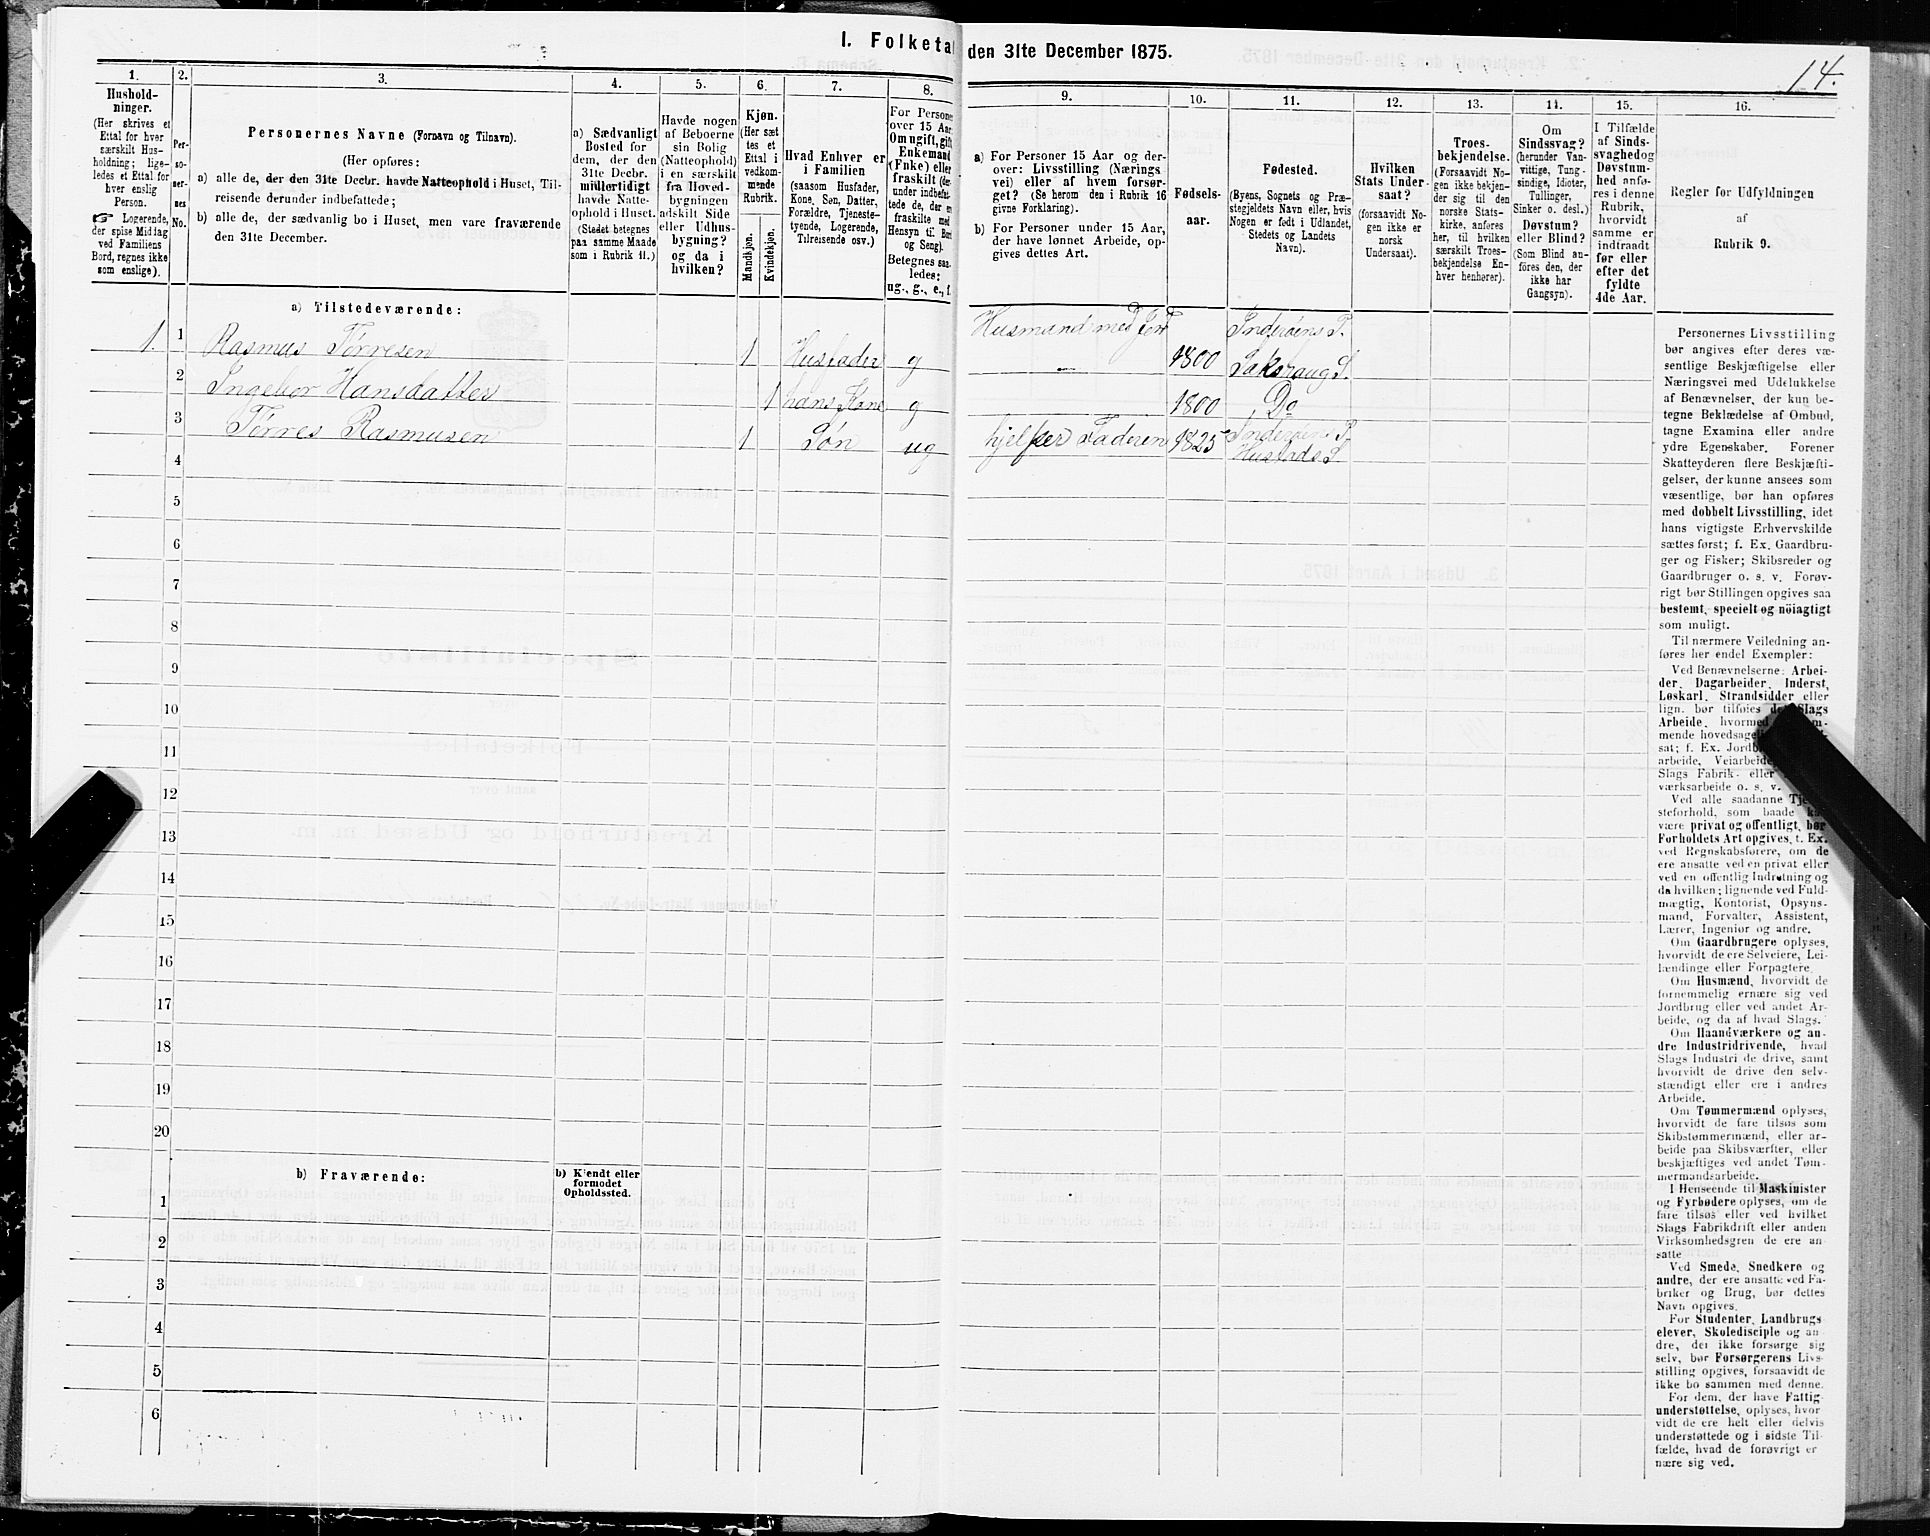 I. Folketal den 31te December 1875.
14.
1. 2. 3. 4. 5. 6. 7. 8. 9. 10. 11. 12. 13. 14. 15. 16.
Hushold-
ninger.
(Her skrives et
Ettal for hver
særskilt Hus-
holdning; lige-
ledes et Ettal for
hver enslig
Person.
Logerende,
der spise Middag
ved Familiens
Bord, regnes ikke
som enslige).
Per-
so-
ner-
nes
No.
Personernes Navne (Fornavn og Tilnavn).
(Her opføres:
a) alle de, der den 31te Decbr. havde Natteophold i Huset, Til-
reisende derunder indbefattede;
b) alle de, der sædvanlig bo i Huset, men vare fraværende
den 31te December.
a) Sædvanligt
Bosted for
dem, der den
31te Decbr.
midlertidigt
havde Natte-
ophold i Huset.
(Stedet betegnes
paa samme Maade
som i Rubrik 11.)
Havde nogen
af Beboerne
sin Bolig
(Natteophold)
i en særskilt
fra Hoved-
bygningen
adskilt Side
eller Udhus-
bygning?
og da i
hvilken?
Kjøn.
(Her sæt-
tes et
Ettal i
vedkom-
mende
Rubrik.
Mandkjøn.
Kvindekjøn.
Hvad Enhver er
i Familien
(saasom Husfader,
Kone, Søn, Datter,
Forældre, Tjeneste-
tyende, Logerende,
Tilreisende osv.)
For Persone
over 15 Aar
Om ugift, gift,
Enkemand
(Enke) eller
fraskilt (der-
under indbefat-
tede de, der er
fraskilte med
Hensyn til Bord
og Seng).
Betegnes saa-
ledes:
ug., g., e., f.
a) For Personer 15 Aar og der-
over: Livsstilling (Nærings
vei) eller af hvem forsør-
get? (Se herom den i Rubrik 16
givne Forklaring).
b) For Personer under 15 Aar,
der have lønnet Arbeide, op-
gives dettes Art.
Fødsels-
aar.
Fødested.
(Byens, Sognets og Præ-
stegjeldets Navn eller, hvis
Nogen er født i Udlandet,
Stedets og Landets
Navn).
Hvilken
Stats Under-
saat?
(forsaavidt No-
gen ikke er
norsk
Undersaat).
Troes-
bekjendelse.
(Forsaavidt No-
gen ikke bekjen-
der sig til den
norske Stats-
kirke, anføres
her, til hvilken
særskilt Troes-
bekjendelse En-
hver henhører).
Om
Sindssvag?
(herunder Van-
vittige, Tung-
sindige, Idioter,
Tullinger,
Sinker o. desl.)
Døvstum?
eller Blind?
(Som Blind an-
føres den, der
ikke har
Gangsyn).
I Tilfælde
af Sinds-
svaghed og
Døvstum-
hed anfø-
res i denne
Rubrik,
hvorvidt
samme er
indtraadt
før eller
efter det
fyldte
4de Aar.
Regler for Udfyldningen
af
Rubrik 9.
a) Tilstedeværende:
1. 1 Rasmus Tørresen 1 Husfader g Husmand med Jord 1800 Inderøens P. Sakshaug S.
2 Ingebor Hansdatter 1 hans Kone g 1800 Do
3 Tørres Rasmusen 1 Søn ug hjelper Faderen 1825 Inderøens P. Hustads S.
4
5
6
7
8
9
10
11
12
13
14
15
16
17
18
19
20
b) Fraværende:
b) Kjendt eller
formodet
Opholdssted.
1
2
3
4
5
6
Personernes Livsstilling
bør angives efter deres væ-
sentlige Beskjæftigelse eller
Næringsvei med Udelukkelse
af Benævnelser, der kun be-
tegne Beklædelse af Ombud,
tagne Examina eller andre
ydre Egenskaber. Forener
Skatteyderen flere Beskjæfti-
gelser, der kunne ansees som
væsentlige, bør han opføres
med dobbelt Livsstilling, idet
hans vigtigste Erhvervskilde
sættes først; f. Ex. Gaardbru-
ger og Fisker; Skibsreder og
Gaardbruger o. s. v. Forøv-
rigt bør Stillingen opgives saa
bestemt, specielt og nöiagtigt
som muligt.
Til nærmere Veiledning an-
føres her endel Exempler:
Ved Benævnelserne: Arbei-
der, Dagarbeider, Inderst,
Løskarl, Strandsidder eller
lign. bør tilføies det Slags
Arbeide, hvormed
mende hovedsageli
sat; f. Ex. Jordb
arbeide, Veiarbeide
Slags Fabrik- eller
værksarbeide o. s. v.
Ved alle saadanne Tje
steforhold, som baade ka
være privat og offentligt, bør
Forholdets Art opgives, t. Ex.
ved Regnskabsførere, om de
ere ansatte ved en privat eller
ved en offentlig Indretning og
da hvilken; lignende ved Fuld-
mægtig, Kontorist, Opsyns-
mand, Forvalter, Assistent,
Lærer, Ingeniør og andre.
Om Gaardbrugere oplyses,
hvorvidt de ere Selveiere, Lei-
lændinge eller Forpagtere.
Om Husmænd, hvorvidt de
fornemmelig ernære sig ved
Jordbrug eller ved andet Ar-
beide, og da af hvad Slags.
Om Haandværkere og an-
dre Industridrivende, hvad
Slags Industri de drive, samt
hvorvidt de drive den selv-
stændigt eller ere i andres
Arbeide.
Om Tømmermænd oplyses,
hvorvidt de fare tilsøs som
Skibstømmermænd, eller ar-
beide paa Skibsværfter, eller
beskjæftiges ved andet Tøm-
mermandsarbeide.
I Henseende til Maskinister
og Fyrbødere oplyses, om de
fare tilsøs eller ved hvilket
Slags Fabrikdrift eller anden
Virksomhedsgren de ere an-
satte
Ved Smede, Snedkere og
andre, der ere ansatte ved Fa-
briker og Brug, bør dettes
Navn opgives.
For Studenter, Landbrugs-
elever, Skoledisciple og an-
dre, der ikke forsørge sig
selv, bør Forsørgerens Livs-
stilling opgives, forsaavidt de
ikke bo sammen med denne.
For dem, der have Fattig-
understøttelse, oplyses, hvor-
vidt de ere helt eller delvis
understøttede og i sidste Til-
fælde, hvad de forøvrigt er-
nære sig ved.